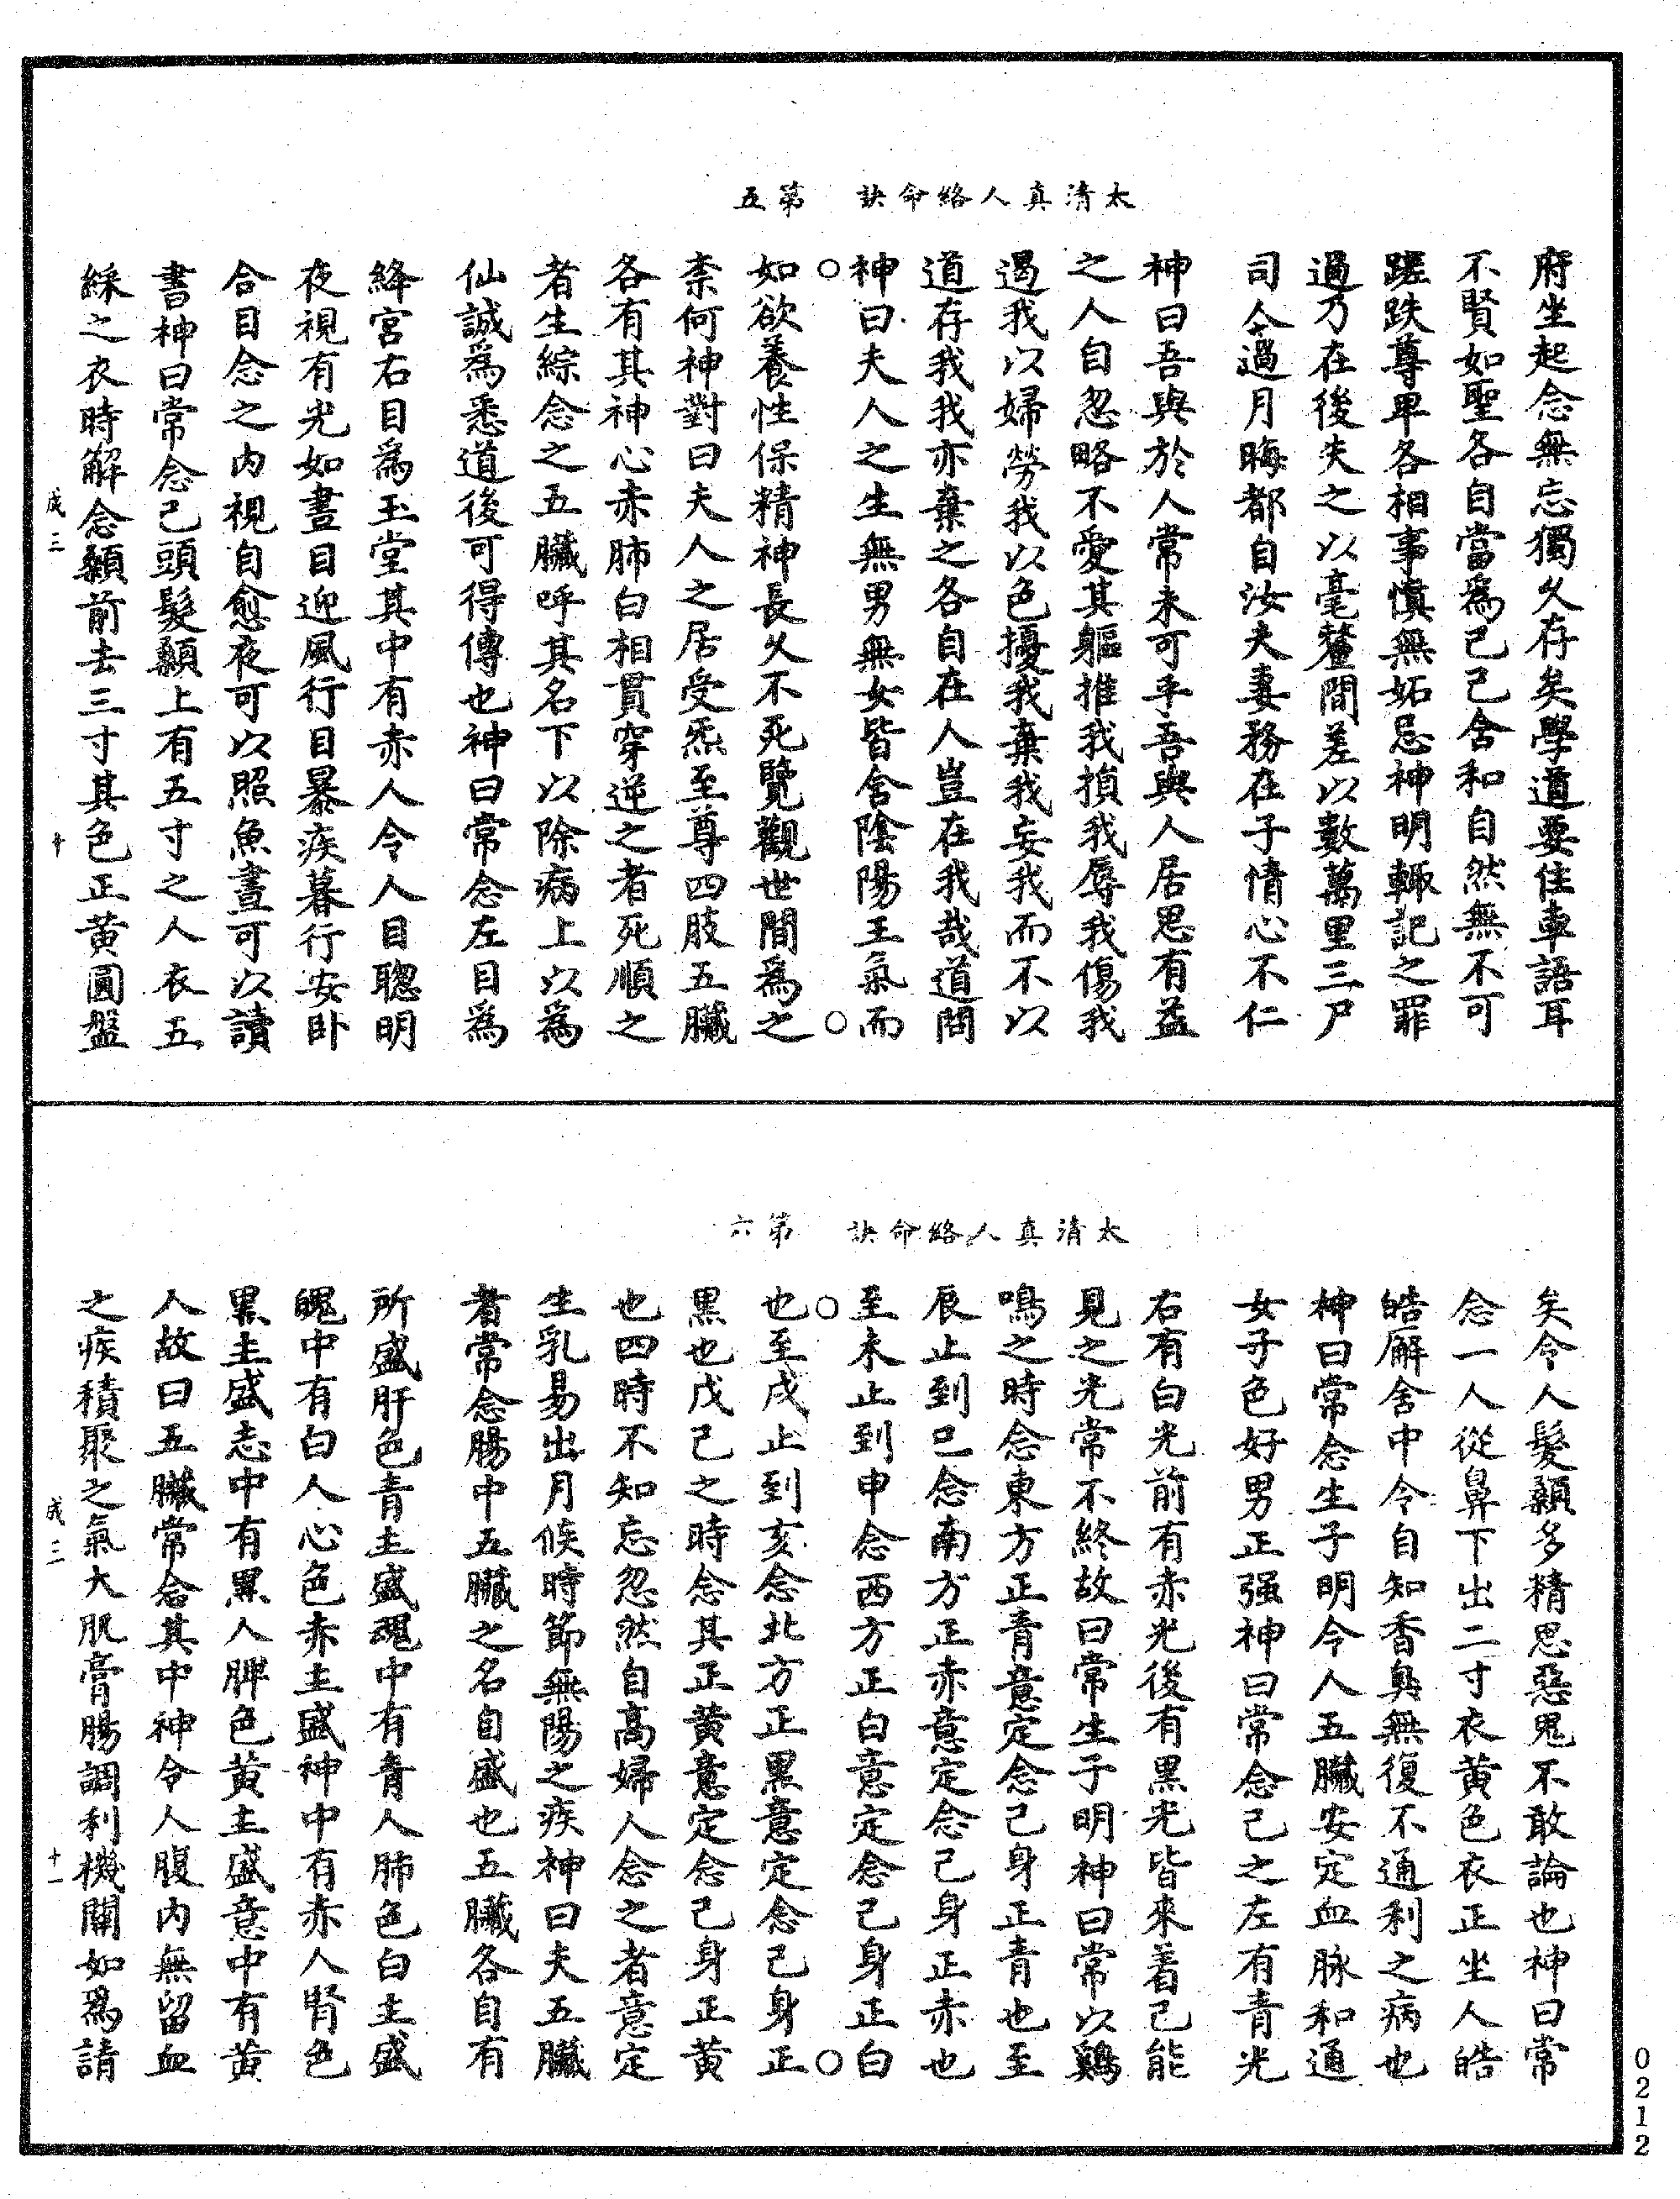 太清真人絡命訣　第五
府坐起念無忘獨久存矣學道要住車語耳
不賢如聖各自當為己己舍和自然無不可
蹉跌尊卑各相事慎無妬忌神明輒記之罪
過乃在後失之以毫釐間差以數萬里三尸
司人過月晦都自汝夫妻務在子情心不仁
神曰吾與於人常未可乎吾與人居思有益
之人自忽略不愛其軀推我損我辱我傷我
遏我以婦勞我以色擾我棄我妄我而不以
道存我我亦棄之各自在人豈在我哉道問
神曰夫人之生無男無女皆舍陰陽王氣而
如欲養性保精神長久不死覽觀世間為之
柰何神對曰夫人之居受炁至尊四肢五臟
各有其神心赤肺白相貫穿逆之者死順之
者生綜念之五臟呼其名下以除病上以為
仙誠為悉道後可得傳也神曰常念左目為
絳宮右目為玉堂其中有赤人令人目聰明
夜視有光如晝目迎風行目暴疾暮行安卧
合目念之內視自愈夜可以照魚晝可以讀
書神曰常念己頭髮顙上有五寸之人衣五
綵之衣時解念顙前去三寸其色正黃圓盤
成三　十
太清真人絡命訣　第六
矣令人髮顙多精思惡鬼不敢論也神曰常
念一人從鼻下出二寸衣黃色衣正坐人皓
皓廨舍中令自知香臭無復不通利之病也
神曰常念生子明令人五臟安定血脉和通
女子色好男正强神曰常念己之左有青光
右有白光前有赤光後有黑光皆來着己能
見之光常不終故曰常生子明神曰常以鷄
鳴之時念東方正青意定念己身正青也至
辰止到巳念南方正赤意定念己身正赤也
至未止到申念西方正白意定念己身正白
也至戌止到亥念北方正黑意定念己身正
黑也戊己之時念其正黃意定念己身正黃
也四時不知忘忽然自高婦人念之者意定
生乳易出月候時節無陽之疾神曰夫五臟
者常念腸中五臟之名自盛也五臟各自有
所盛肝色青主盛魂中有青人肺色白主盛
魄中有白人心色赤主盛神中有赤人腎色
黑主盛志中有黑人脾色黃主盛意中有黃
人故曰五臟常念其中神令人腹內無留血
之疾積聚之氣大肌膏腸調利機關如為請
成三　十一
0212